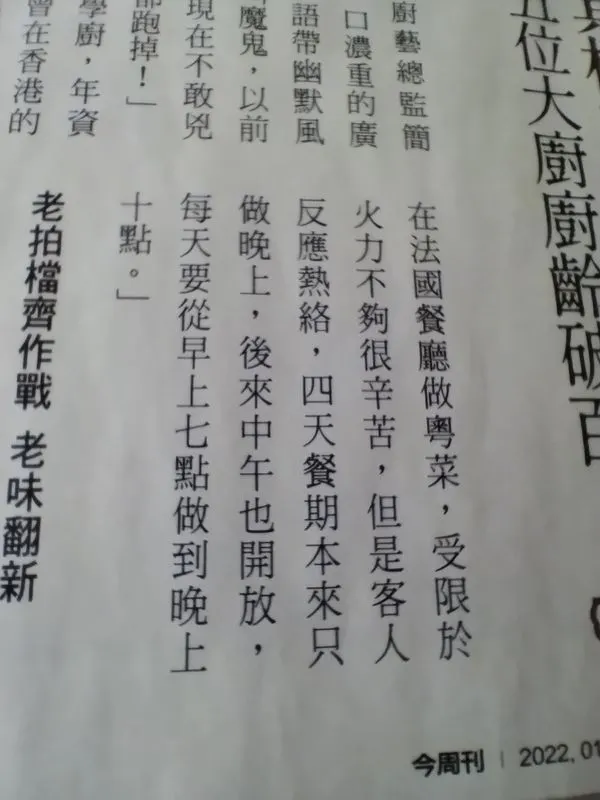 位大廚廚齡破百
廚藝總監簡
口濃重的廣
語帶幽默風
魔鬼，以前
現在不敢兇
都跑掉！」
學廚，年資
曾在香港的
在法國餐廳做粵菜，受限於
火力不夠很辛苦，但是客人
反應熱絡，四天餐期本來只
做晚上，後來中午也開放，
每天要從早上七點做到晚上
十點。」
老拍檔齊作戰 老味翻新
今周刊 | 2022, 01